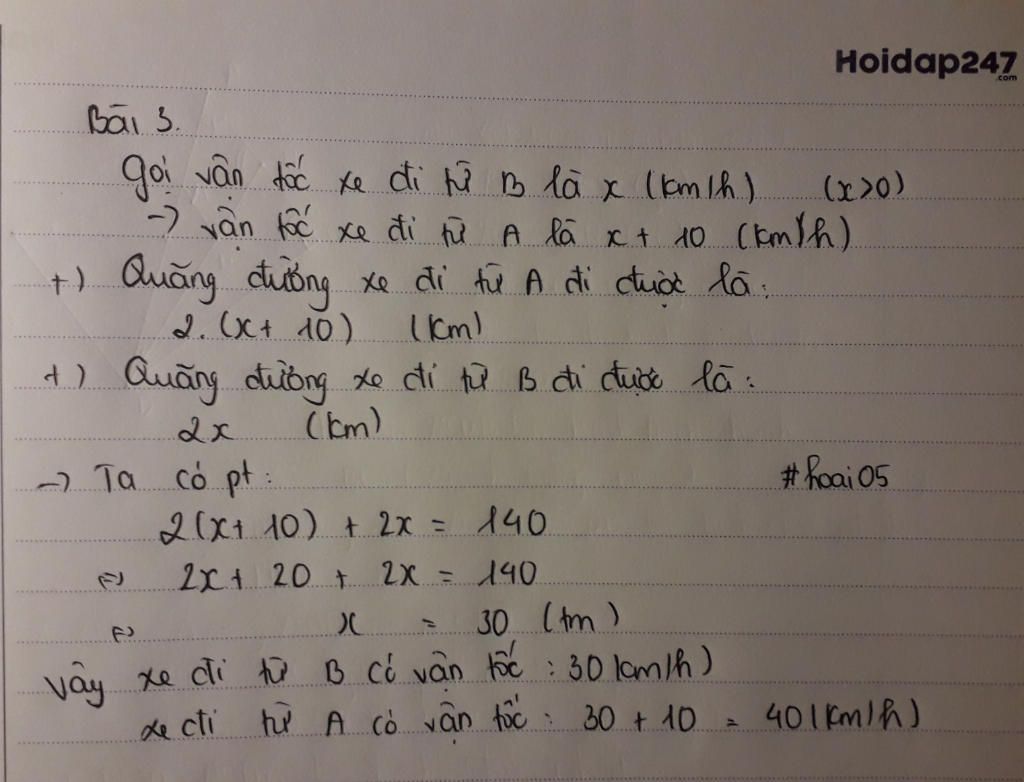 Hoidap247
.com
Bài 3.
Gọi vận tốc xe đi từ B là x (km/h) (x>0)
→ vận tốc xe đi từ A là x + 10 (km/h)
+) Quãng đường xe đi từ A đi được là:
2.(x+ 10) (km)
+) Quãng đường xe đi từ B đi được là:
2x (km)
→ Ta có pt: #hoai05
2(x+ 10) + 2x = 140
⇔ 2x + 20 + 2x = 140
⇔ x = 30 (tm)
Vậy xe đi từ B có vận tốc : 30 (km/h)
xe đi từ A có vận tốc : 30 + 10 = 40 (km/h)